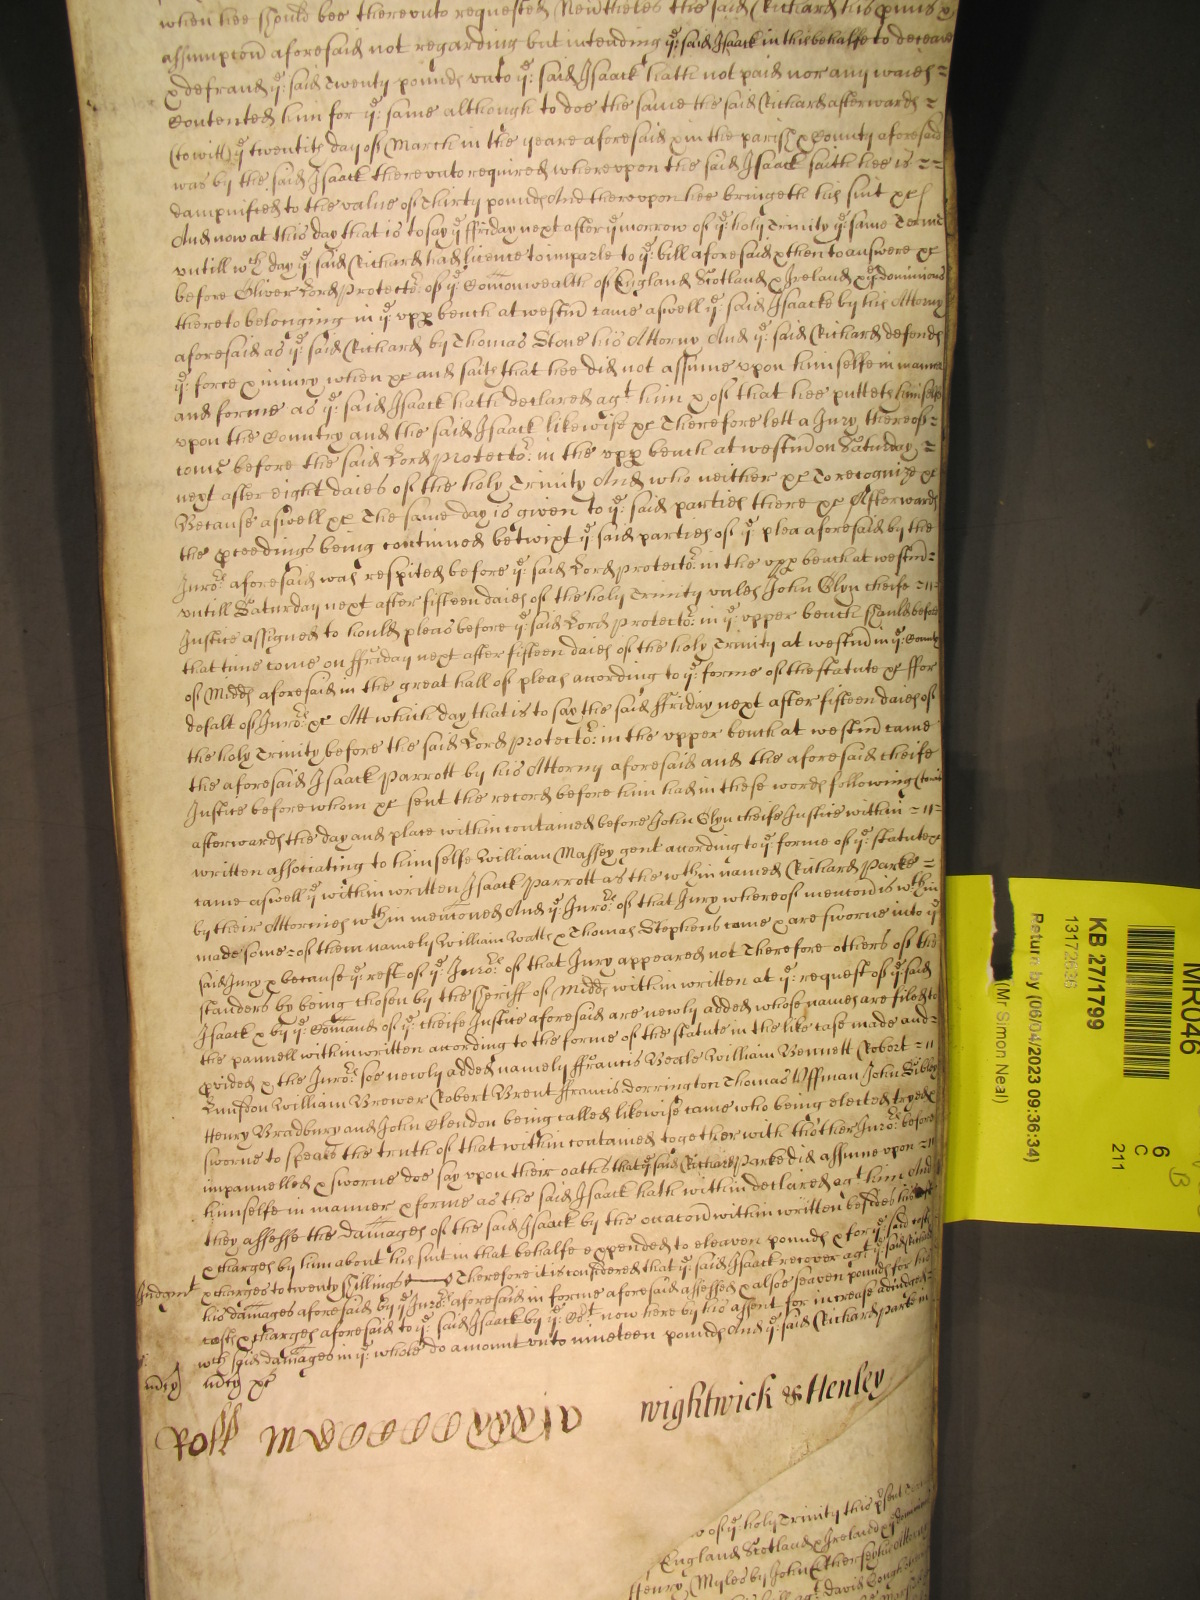 when hee should bee thereunto requested Nev'theles the said Richard his p'mis &
assumpcon aforesaid not regarding but intending ye: said Isaack in this behalfe to deceave
& defraud ye: said twenty pounds unto ye: said Isaack hath not paid nor any waies =
Contented him for ye: same although to doe the same the said Richard afterwards =
(to witt) ye twentith day of March in the yeare aforesaid & in the parish & County aforesaid
was by the said Isaack thereunto required whereupon the said Isaack saith hee is = =
dampnified to the value of Thirty pounds And thereupon hee bringeth his suit &c
And now at this day that is to say ye ffriday next after ye morrow of ye: holy Trinity ye: same Terme
untill wch day ye: said Richard had licence to imparle to ye: bill aforesaid & then to answere &c
before Oliver Lord Protector: of ye: Comonwealth of England Scotland & Ireland & ye dominions
thereto belonging in ye: upp bench at westm came aswell ye: said Isaacke by his Attorny
aforesaid as ye: said Richard by Thomas Stone his Attorny And ye: said Richard defends
ye: force & iniury when &c and saith that hee did not assume upon himselfe in manner
and forme as ye: said Isaack hath declared agt him & of that hee putteth himselfe
upon the Country and the said Isaack likewise &c Therefore lett a Jury thereof =
come before the said Lord Protector: in the upp bench at westm on Saturday =
next after eight daies of the holy Trinity And who neither &c To recognize &c
Because aswell &c The same day is given to ye: said parties there &c Afterwards
the pceedings being continued betwixt ye said parties of ye plea aforesaid by the
Juror: aforesaid was respited before ye: said Lord Protector: in the upp bench at westm =
untill Saturday next after fifteen daies of the holy Trinity unles John Glyn cheife =
Justice assigned to hould pleas before ye: said Lord Protector: in ye: upper bench should before
that time come on ffriday next after fifteen daies of the holy Trinity at westm in ye: County
of Midds aforesaid in the great hall of pleas according to ye: forme of the statute &c ffor
defalt of Juror: &c Att which day that is to say the said ffriday next after fifteen daies of
the holy Trinity before the said Lord Protector: in the upper bench at westm came
the aforesaid Isaack Parrott by his Attorny aforesaid and the aforesaid cheife
Justice before whom &c sent the record before him had in these words following (to wit)
afterwards the day and place within contained before John Glyn cheife Justice within =
written associating to himselfe William Massey gent according to ye: forme of ye: statute &c
came aswell ye within written Isaack Parrott as the wthin named Richard Parke =
by their Attornies wthin mencioned And ye: Juror: of that Jury whereof mencon is wthin
made some of them namely William Watts & Thomas Stephens came & are sworne into ye
said Jury & because ye: rest of ye: Juror: of that Jury appeared not Therefore others of the
standers by being chosen by the sheriff of Midds within written at ye: request of ye: said
Isaack & by ye: Comand of ye: cheife Justice aforesaid are newly added whose names are filed to
the pannell within written according to the forme of the statute in the like case made and =
pvided & the Juror: soe newly added namely ffrancis Beale William Bennett Robert =
William Brewer Robert Brent ffrancis dorrington Thomas Uffman John
Henry Bradbury and John Clendon being called likewise came who being elected tryed &
sworne to speake the truth of that within contained together with thother Juror: before
impannelled & sworne doe say upon their oaths that ye said Richard Parke did assume upon =
himselfe in manner & forme as the said Isaack hath within declared agt him And
they assesse the damages of the said Isaack by the occacon within written besides his
& charges by him about his suit in that behalfe expended to eleaven pounds & for ye: said costs
Judgmt & charges to twenty shillings Therefore it is considered that ye: said Isaack recover agt ye: said Richard
his damages aforesaid by ye Juror: aforesaid in forme aforesaid assessed & alsoe seaven pounds for his
costs & charges aforesaid to ye: said Isaack by ye: Cort now here by his assent for increase adiudged =
wch said damages in ye: whole do amount unto nineteen pounds And ye: said Richard Parke in
mcy mcy &c
Roll wightwick & Henley
of ye: holy Trinity this
England Scotland & Ireland & ye dominions
Henry Myles by John his Attorny
agt David
MR046
6
C
211
KB 27/1799
13172636
Return by (06/04/2023 09:36:34)
(Mr Simon Neal)